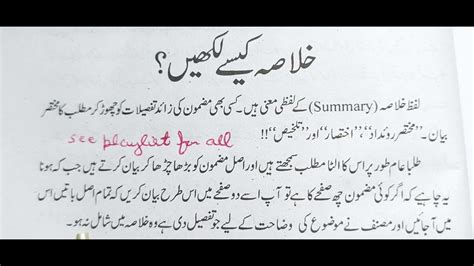 خلاصہ کیسے لکھیں؟
لفظ خلاصہ (Summary) کے لفظی معنی ہیں۔ کسی بھی مضمون کی زائد تفصیلات کو چھوڑ کر مطلب کا مختصر
بیان۔ "مختصر روئداد"، "اختصار" اور "تلخیص"!!
see playlist for all
طلبا عام طور پر اس کا الٹا مطلب سمجھتے ہیں اور اصل مضمون کو بڑھا چڑھا کر بیان کرتے ہیں جب کہ ہونا
یہ چاہیے کہ اگر کوئی مضمون چھ صفحے کا ہے تو آپ اسے دو صفحے میں اس طرح بیان کریں کہ تمام اصل باتیں اس
میں آجائیں اور مصنف نے موضوع کی وضاحت کے لیے جو تفصیل دی ہے وہ خلاصہ میں شامل نہ ہو۔